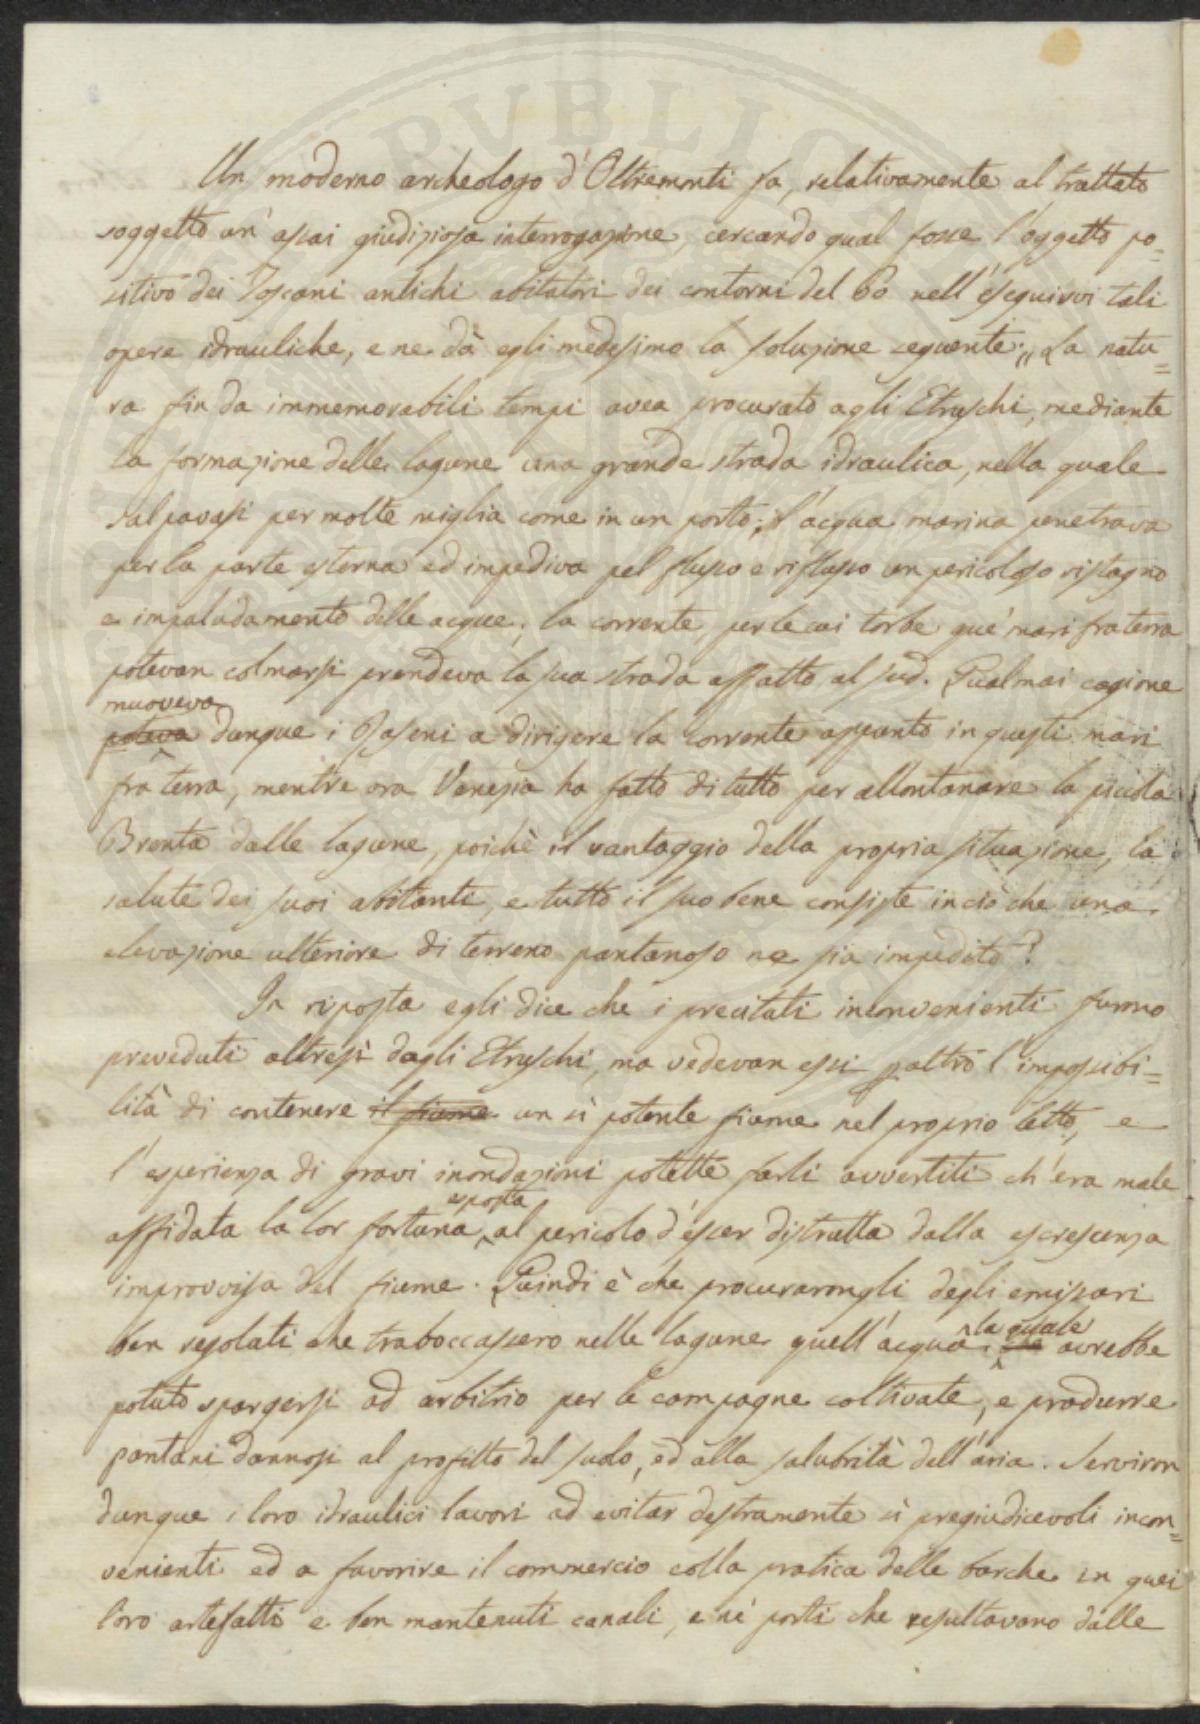 Un moderno archeologo d'Oltremonti fa, relativamente al trattato
soggetto un'assai giudiziosa interrogazione, cercando qual fosse l'oggetto po=
sitivo dei Toscani antichi abitatori dei contorni del Po nell'eseguirvi tali
opere idrauliche, e ne dà egli medesimo la soluzione seguente: „ La natu=
ra fin da immemorabili tempi avea procurato agli Etruschi, mediante
la formazione delle lagune una grande strada idraulica, nella quale
salpavasi per molte miglia come in un porto; l'acqua marina penetrava
per la parte esterna ed impediva pel flusso e riflusso un pericoloso ristagno
e impaludamento delle acque; la corrente, per le cui torbe que' mari fra terra
potevan colmarsi prendeva la sua strada affatto al sud. Qual mai cagione
muoveva
poteva dunque i Raseni a dirigere la corrente appunto in questi mari
fra terra, mentre ora Venezia ha fatto di tutto per allontanare la piccola
Brenta dalle lagune, poichè il vantaggio della propria situazione, la
salute dei suoi abitanti, e tutto il suo bene consiste in ciò che una
elevazione ulteriore di terreno pantanoso ne sia impedito?
In risposta egli dice che i precitati inconvenienti furono
preveduti altresì dagli Etruschi, ma vedevan essi peraltro l'impossibi=
lità di contenere il fiume un sì potente fiume nel proprio letto, e
l'esperienza di gravi inondazioni potette farli avvertiti ch'era male
esposta
affidata la lor fortuna, al pericolo d'esser distrutta dalla escrescenza
improvvisa del fiume. Quindi è che procurarongli degli emissari
la quale
ben regolati che traboccassero nelle lagune quell'acqua che avrebbe
potuto spargersi ad arbitrio per le campagne coltivate, e produrre
pantani dannosi al profitto del suolo, ed alla salubrità dell'aria. Serviron
dunque i loro idraulici lavori ad evitar destramente sì pregiudicevoli incon=
venienti ed a favorire il commercio colla pratica delle barche in quei
loro artefatti e ben mantenuti canali, e nè porti che resultavano dalle